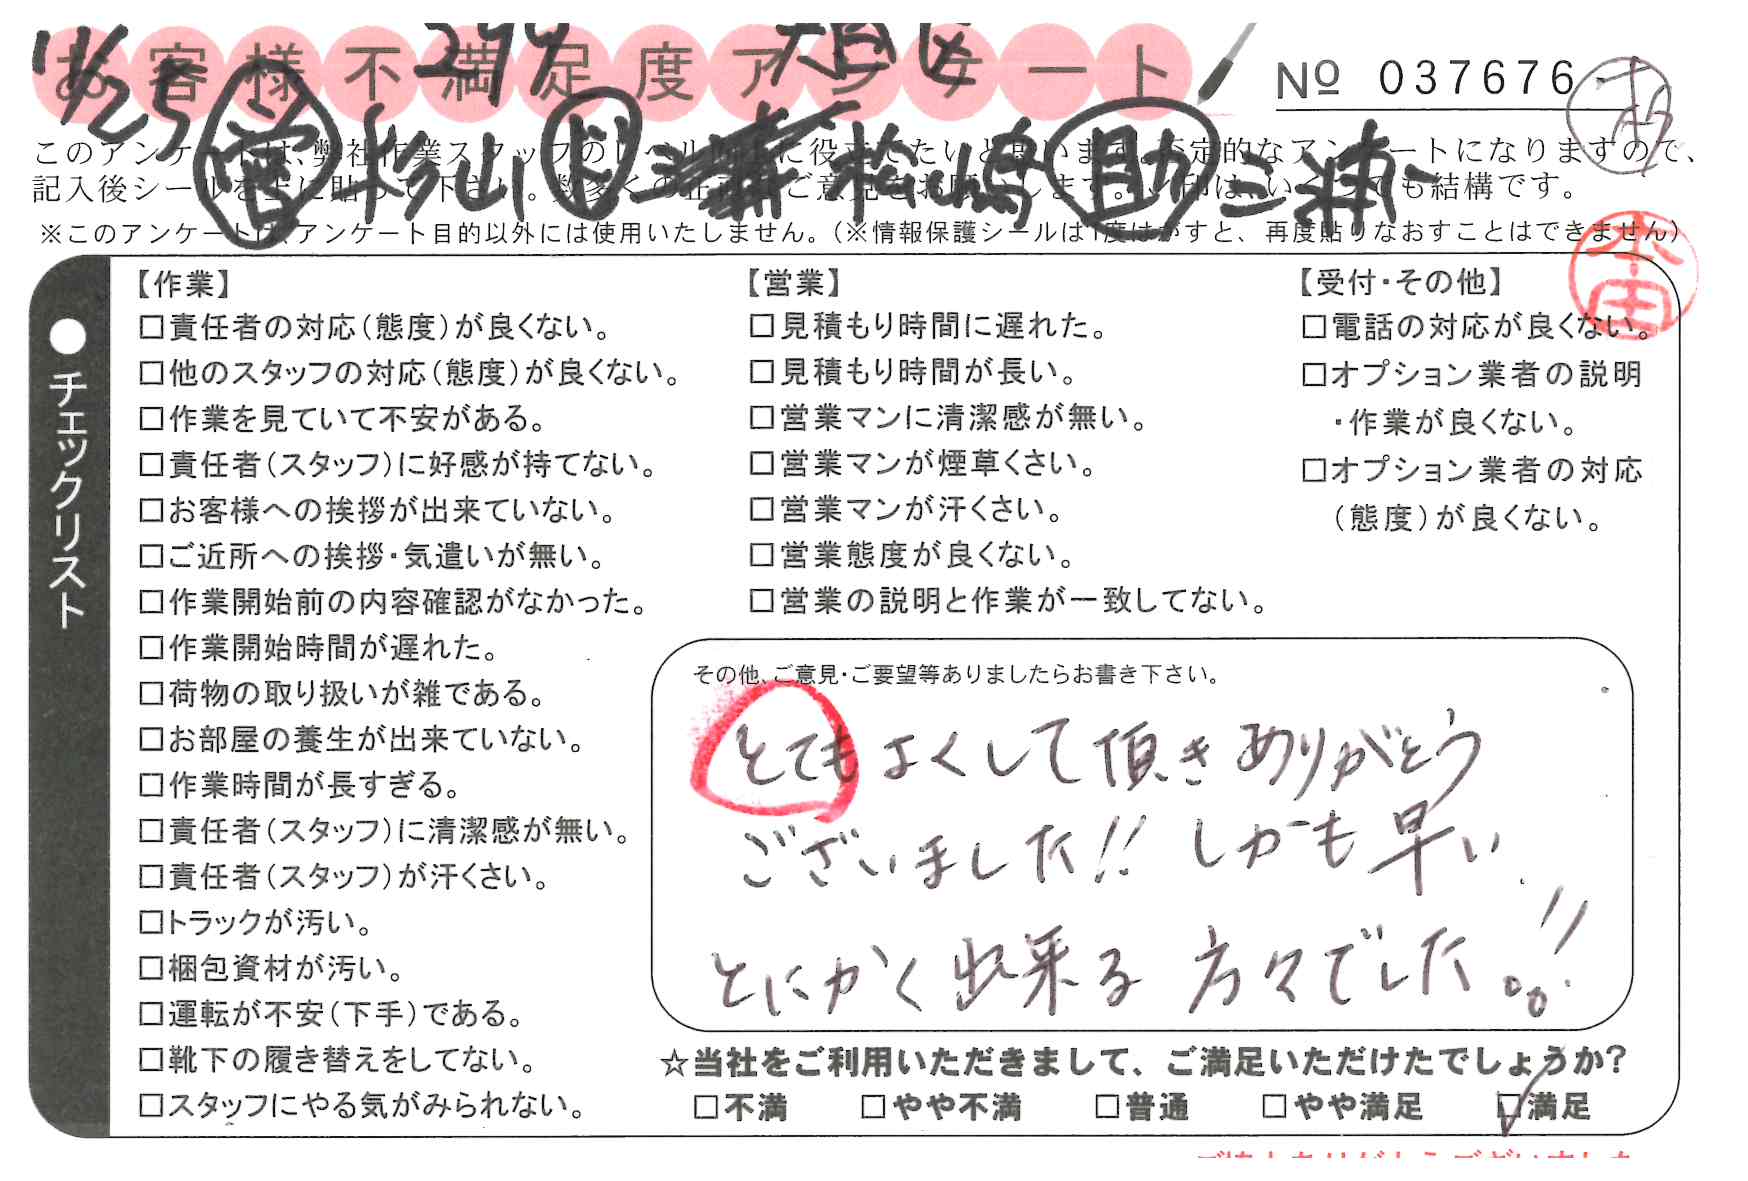 お客様不満足度アンケート
11/25
№ 037676
営 杉山 ド 松嶋 助 三浦
このアンケートは、弊社作業スタッフのレベル向上に役立てたいと思います。否定的なアンケートになりますので、
記入後シールを上に貼って下さい。数多くの正直なご意見をお願いします。レ印は、いくつでも結構です。
※このアンケートは、アンケート目的以外には使用いたしません。（※情報保護シールは1度はがすと、再度貼りなおすことはできません）
●チェックリスト
【作業】
□責任者の対応（態度）が良くない。
□他のスタッフの対応（態度）が良くない。
□作業を見ていて不安がある。
□責任者（スタッフ）に好感が持てない。
□お客様への挨拶が出来ていない。
□ご近所への挨拶・気遣いが無い。
□作業開始前の内容確認がなかった。
□作業開始時間が遅れた。
□荷物の取り扱いが雑である。
□お部屋の養生が出来ていない。
□作業時間が長すぎる。
□責任者（スタッフ）に清潔感が無い。
□責任者（スタッフ）が汗くさい。
□トラックが汚い。
□梱包資材が汚い。
□運転が不安（下手）である。
□靴下の履き替えをしてない。
□スタッフにやる気がみられない。
【営業】
□見積もり時間に遅れた。
□見積もり時間が長い。
□営業マンに清潔感が無い。
□営業マンが煙草くさい。
□営業マンが汗くさい。
□営業態度が良くない。
□営業の説明と作業が一致してない。
【受付・その他】
□電話の対応が良くない。
□オプション業者の説明
・作業が良くない。
□オプション業者の対応
（態度）が良くない。
その他、ご意見・ご要望等ありましたらお書き下さい。
とてもよくして頂きありがとう
ございました!! しかも早い
とにかく出来る方々でした。!!
☆当社をご利用いただきまして、ご満足いただけたでしょうか?
□不満 □やや不満 □普通 □やや満足 ☑満足